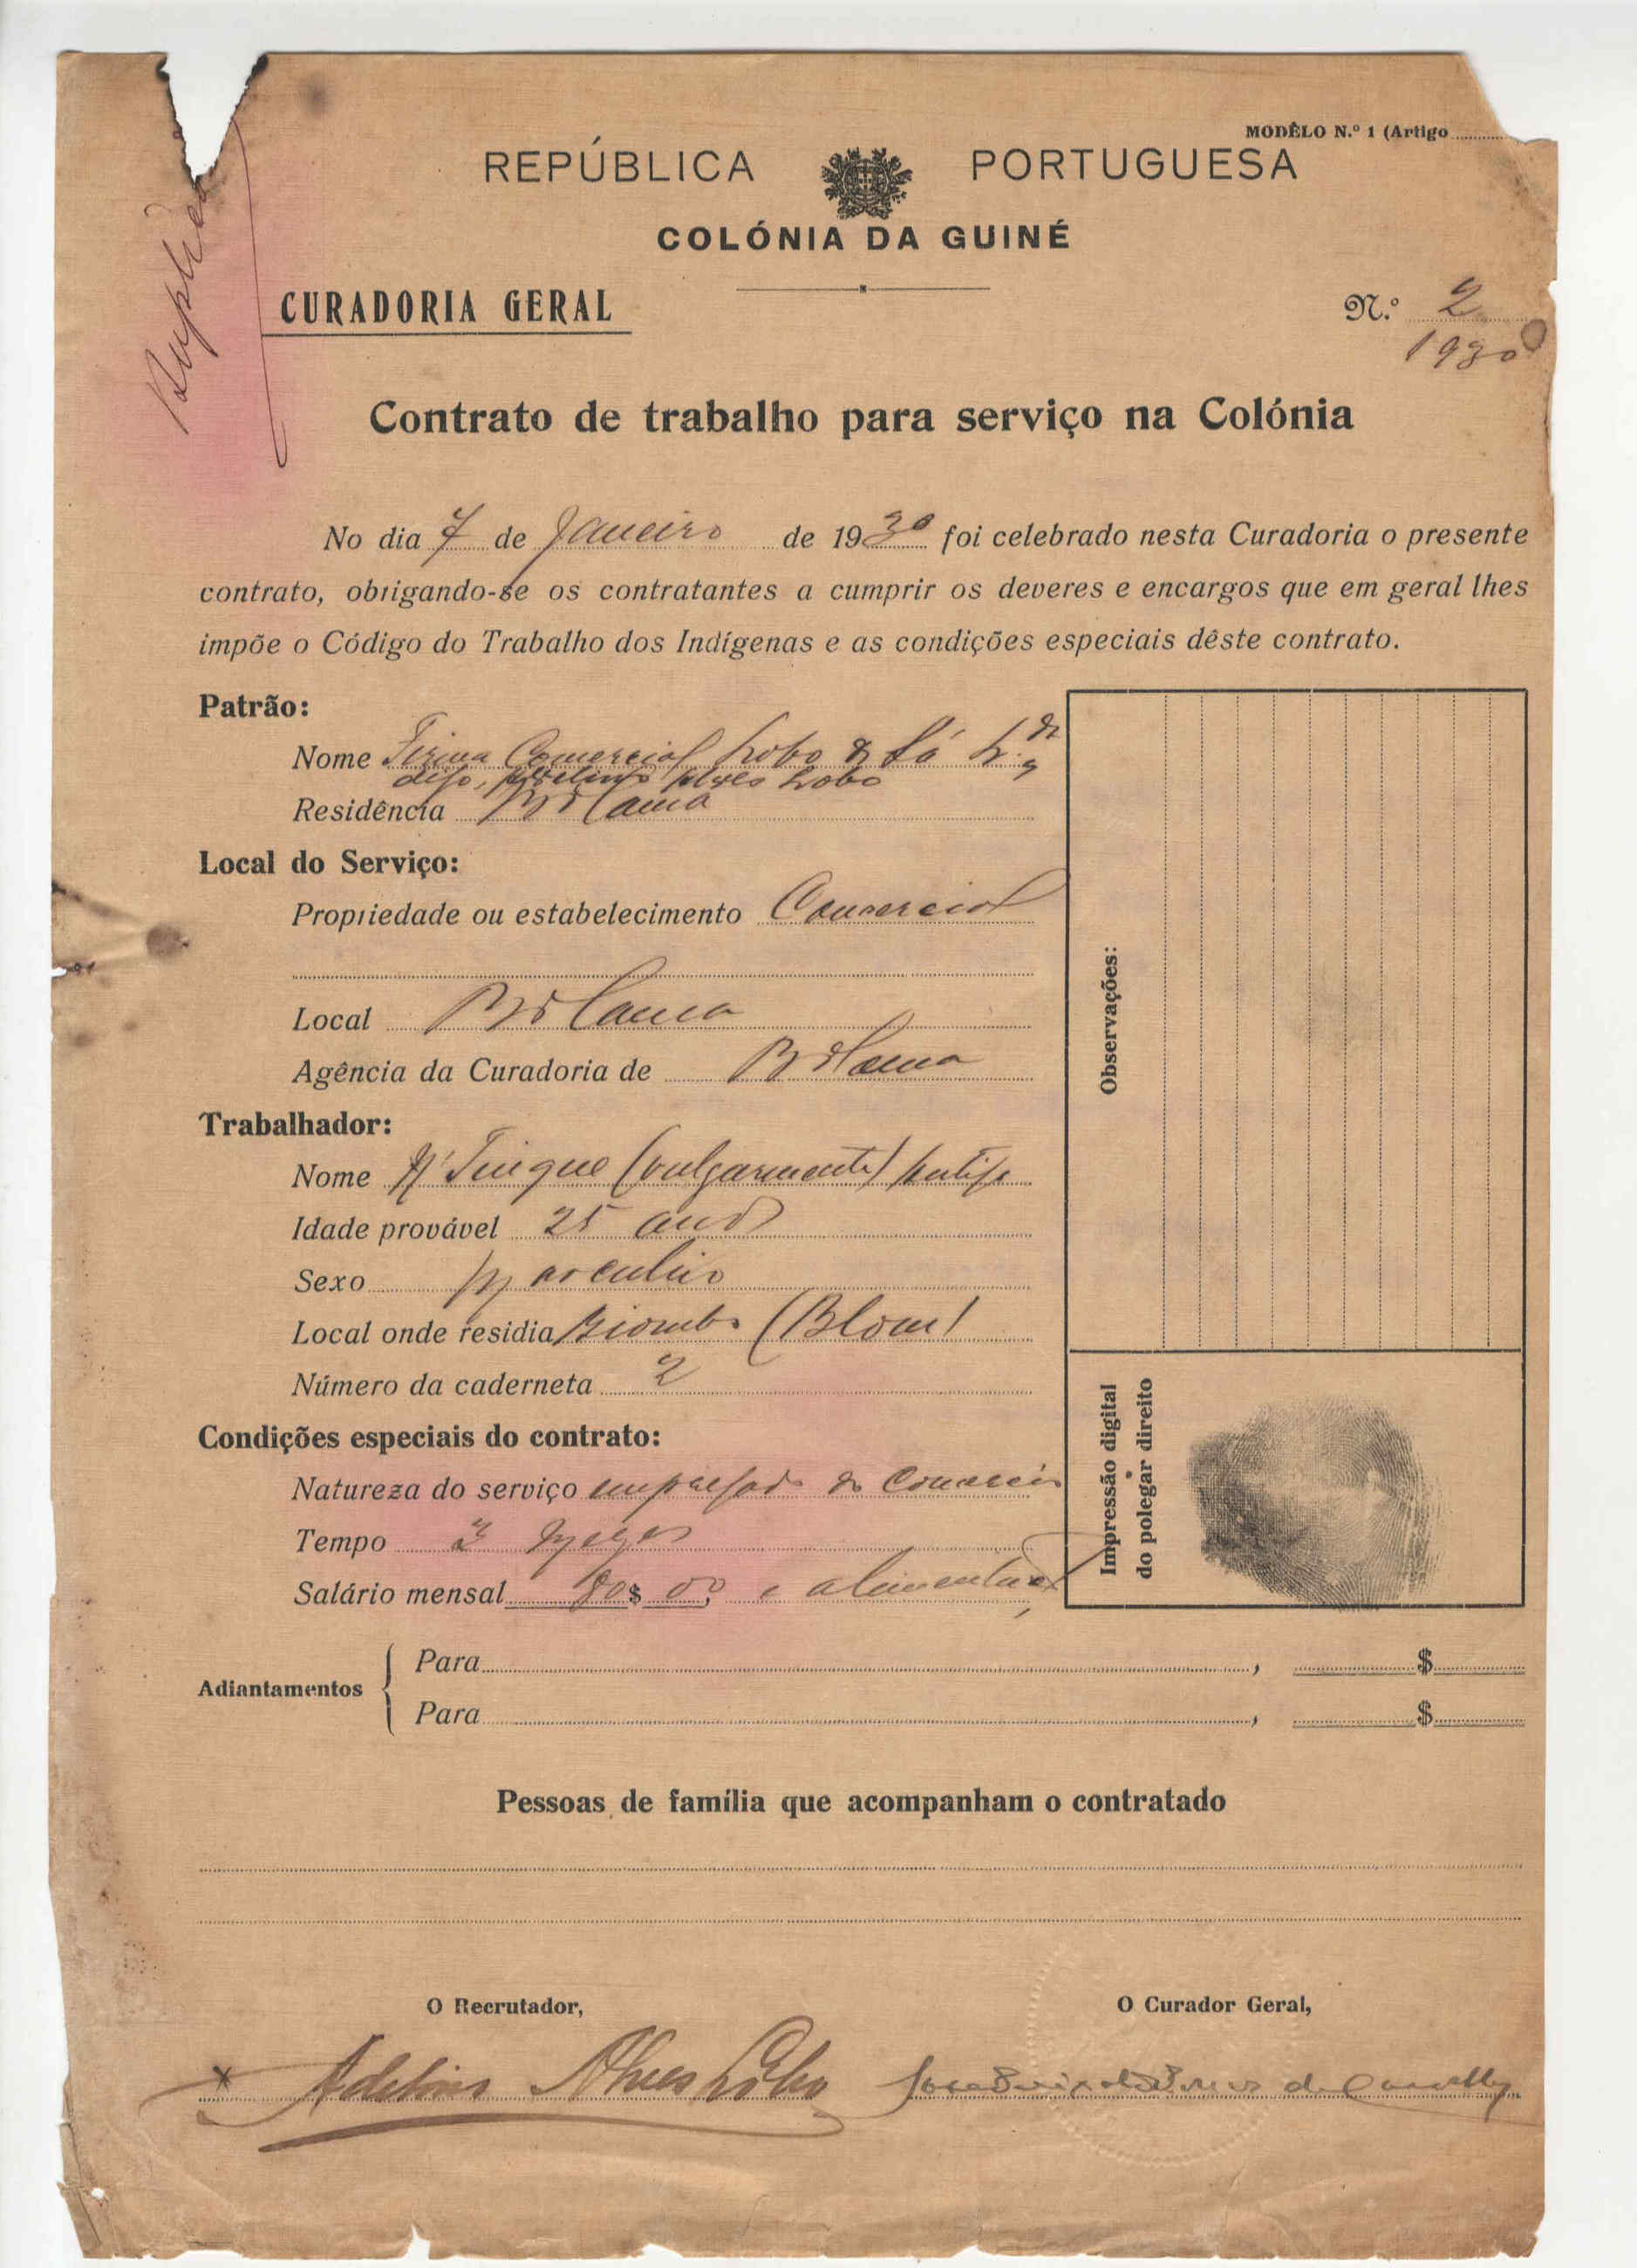 MODÊLO N.º 1 (Artigo
REPÚBLICA PORTUGUESA
COLÓNIA DA GUINÉ
CURADORIA GERAL
N.º 2
1930
Contrato de trabalho para serviço na Colónia
No dia 7 de Janeiro de 1930 foi celebrado nesta Curadoria o presente
contrato, obrigando-se os contratantes a cumprir os deveres e encargos que em geral lhes
impõe o Código do Trabalho dos Indígenas e as condições especiais dêste contrato.
Patrão:
Nome Firma Comercial Lobo & Sá L.da
digo, Adelino Alves Lobo
Residência Bolama
Local do Serviço:
Propriedade ou estabelecimento Comercial
Local Bolama
Agência da Curadoria de Bolama
Trabalhador:
Nome N'Tinque (vulgarmente)
Idade provável 25 anos
Sexo Masculino
Local onde residia Biombo (Blom)
Número da caderneta 2
Condições especiais do contrato:
Natureza do serviço empregado do Comercio
Tempo 3 mezes
Salário mensal 80$00, e alimentação
Observações:
Impressão digital
do polegar direito
Adiantamentos
Para , $
Para , $
Pessoas de família que acompanham o contratado
O Recrutador,
O Curador Geral,
Adelino Alves Lobo